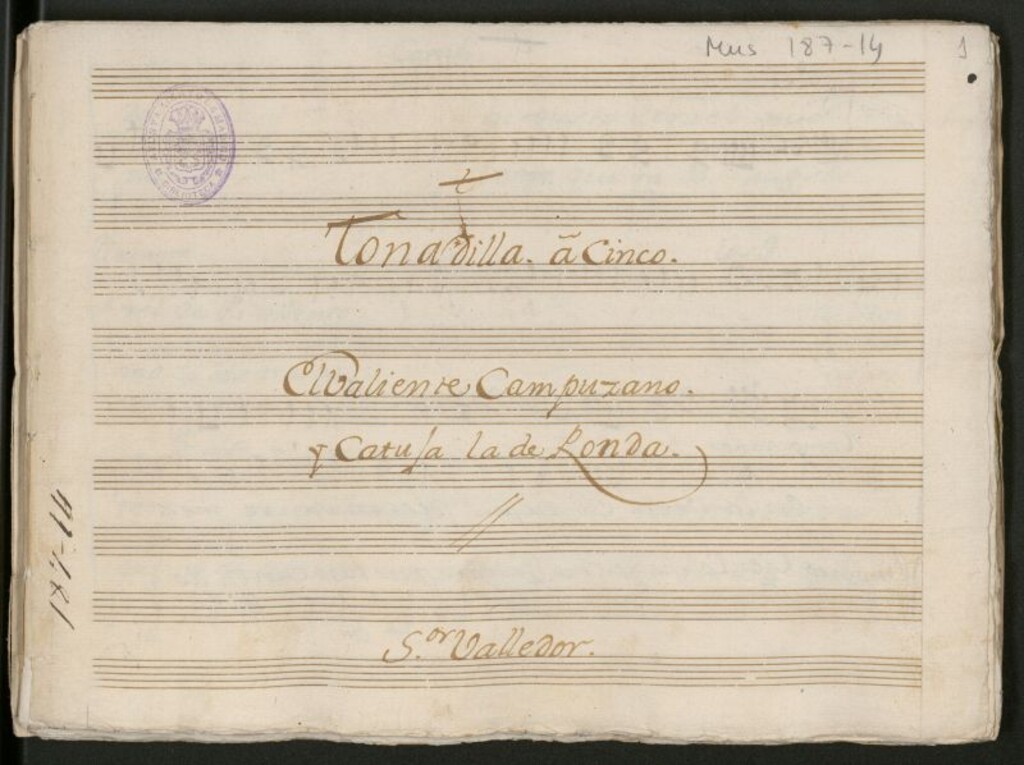 Mus 187-14
1
Tonadilla. â Cinco.
El Valiente Campuzano.
y Catusa la de Ronda.
S.or Valledor.
187-14